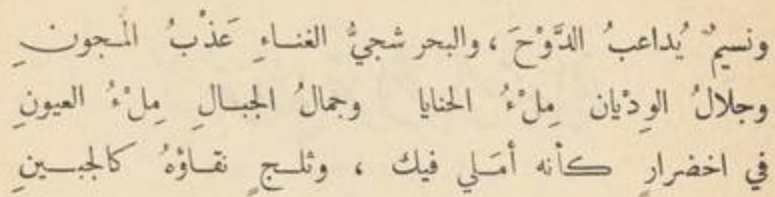 ونسيمٌ يُداعبُ الدَّوْحَ ، والبحر شجيُّ الغناءِ عَذْبُ المجونِ
وجلالُ الوِدْيان مِلْءُ الحنايا وجمالُ الجبالِ مِلْءُ العيونِ
في اخضرارٍ كأنه أمَلي فيك ، وثلجٍ نقاؤهُ كالجبينِ